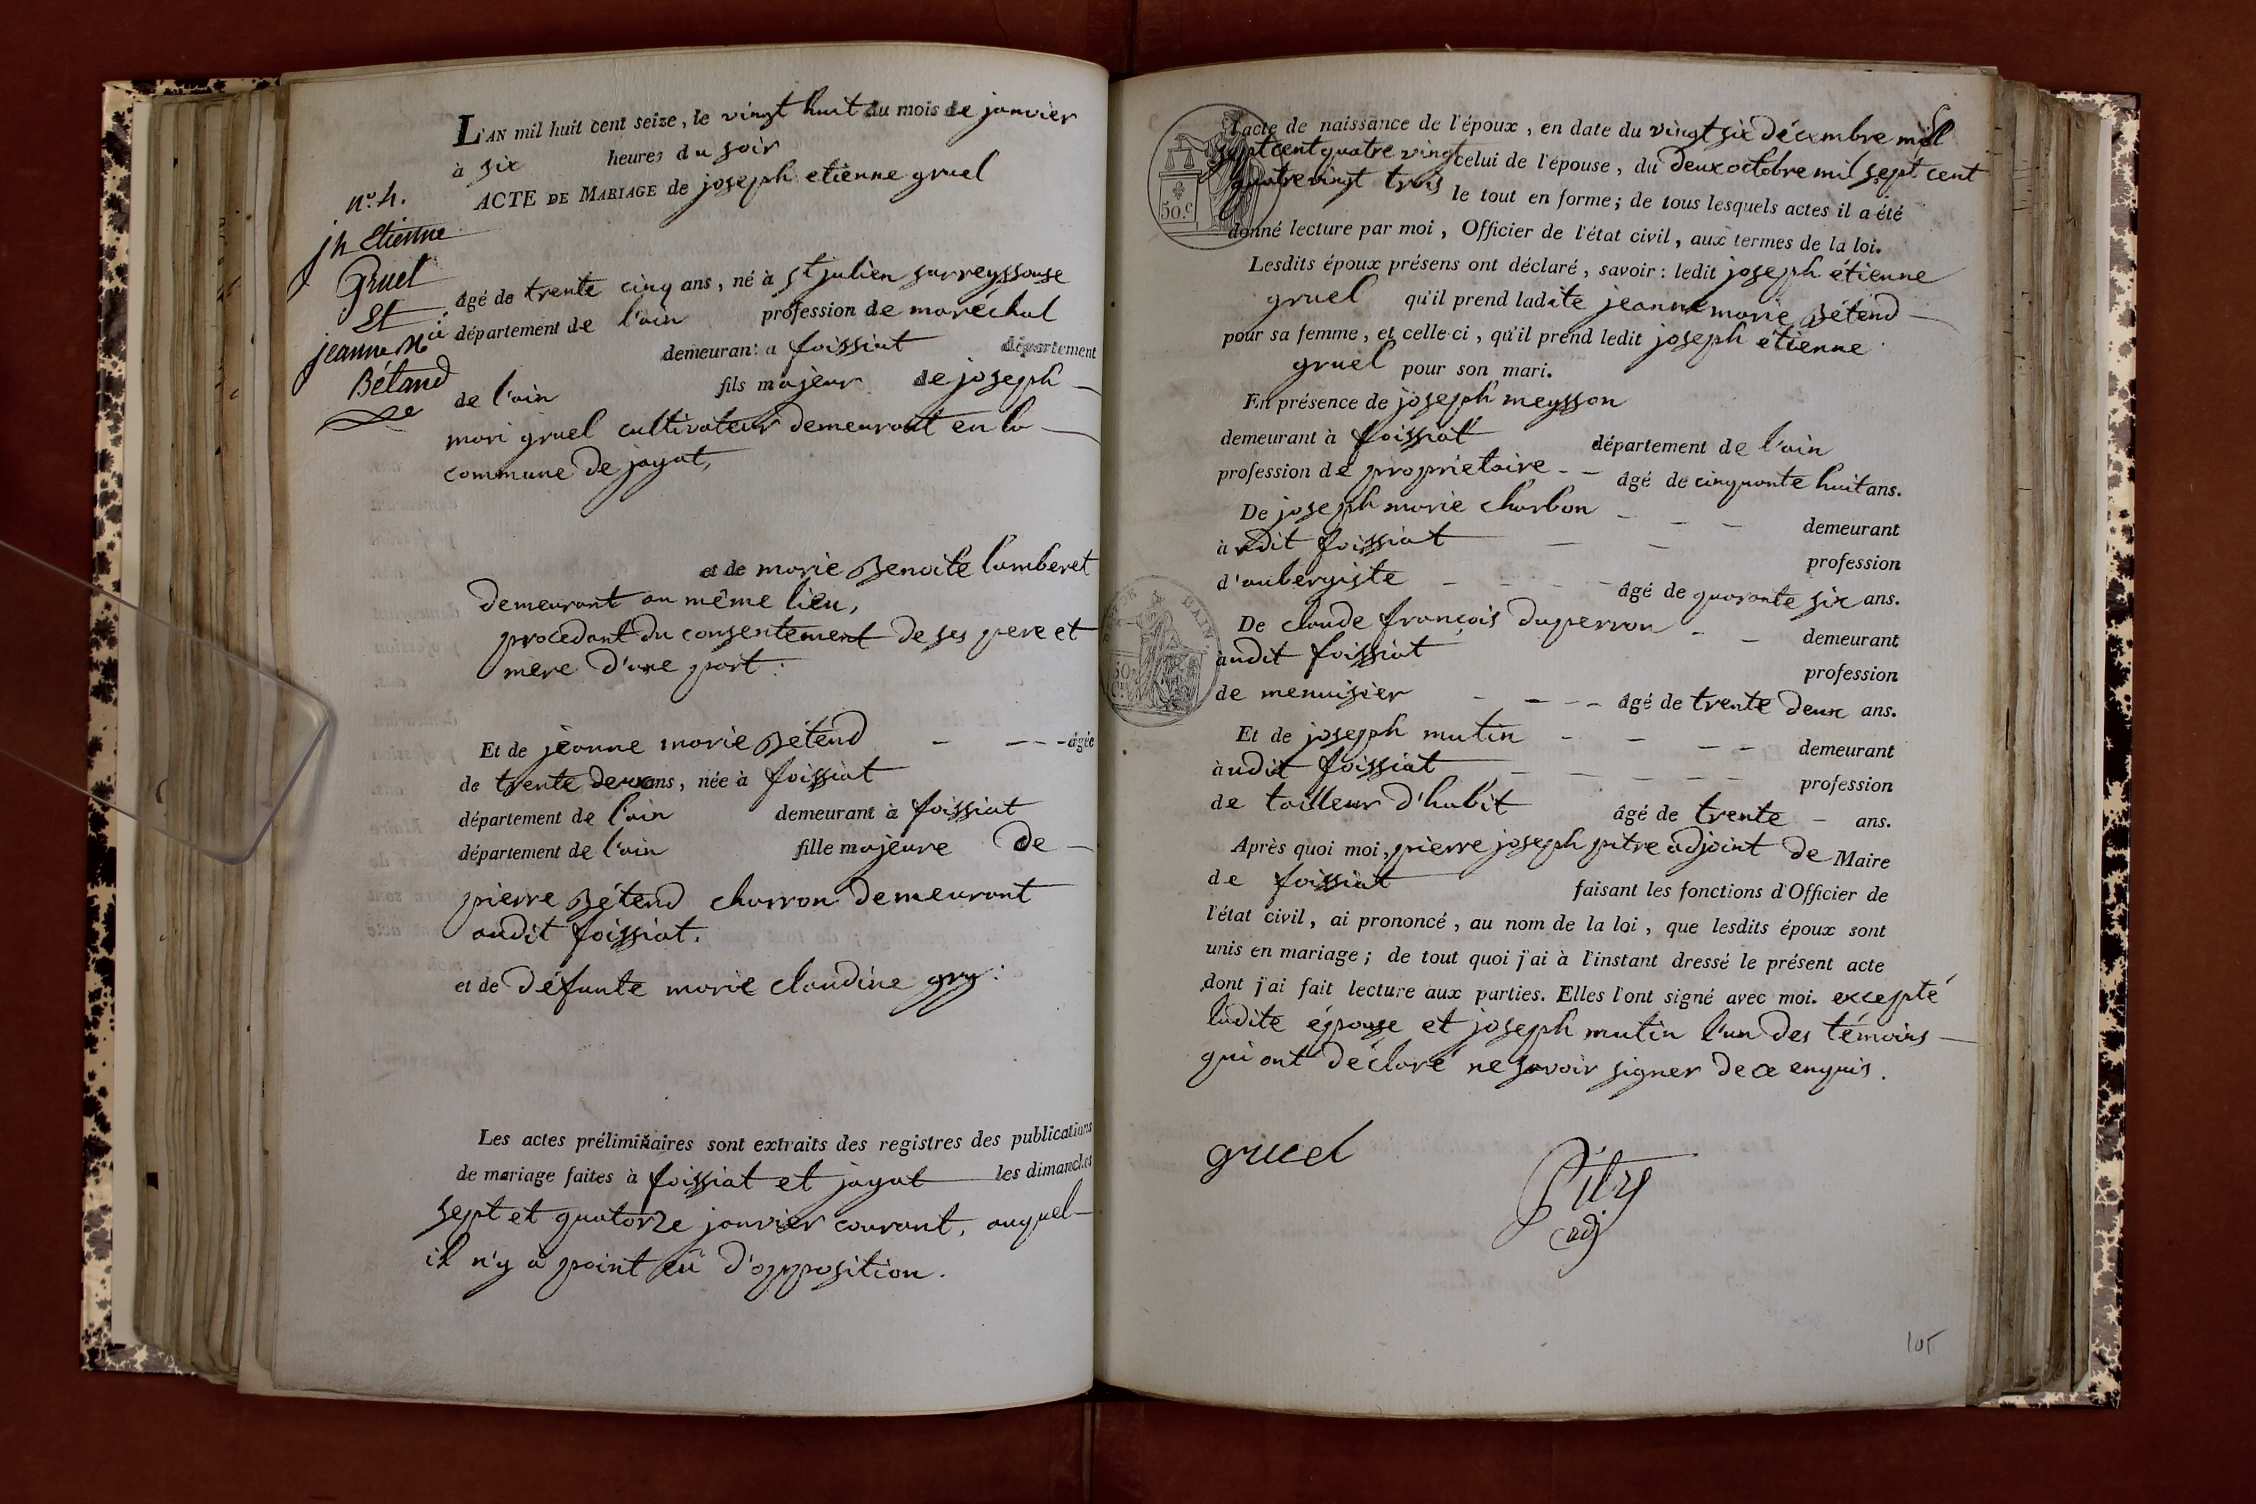 L'AN mil huit cent seize, le vingt huit du mois de janvier
à six heures du soir
ACTE DE MARIAGE de joseph etienne gruel
n.º 4.
jh Etienne
Gruel
Et
jeanne Mie
Bétand
âgé de trente cinq ans, né à st julien surreyssouse
département de l'ain profession de maréchal
demeurant a foissiat département
de l'ain fils majeur de joseph
mari gruel cultivateur demeurant en la
commune de jayat,
et de marie Benoite lamberet
demeurant au même lieu,
procedant du consentement de ses pere et
mere d'une part :
Et de jeanne marie Bétend âgée
de trente deux ans, née à foissiat
département de l'ain demeurant à foissiat
département de l'ain fille majeure de
pierre Bétend charron demeurant
audit foissiat.
et de défunte marie claudine gry.
Les actes préliminaires sont extraits des registres des publications
de mariage faites à foissiat et jayat les dimanches
sept et quatorze janvier courant, auquel
il n'y a point eû d'opposition.
l'acte de naissance de l'époux, en date du vingt six décembre mil
sept cent quatre vingt celui de l'épouse, du deux octobre mil sept cent
quatre vingt trois le tout en forme; de tous lesquels actes il a été
donné lecture par moi, Officier de l'état civil, aux termes de la loi.
50.c
Lesdits époux présens ont déclaré, savoir : ledit joseph étienne
gruel qu'il prend ladite jeanne marie Bétend
pour sa femme, et celle-ci, qu'il prend ledit joseph étienne
gruel pour son mari.
En présence de joseph meysson
demeurant à foissiat département de l'ain
profession de proprietaire - - âgé de cinquante huit ans.
De joseph marie charbon - - - demeurant
à udit foissiat - - profession
d'aubergiste - - - - âgé de quarante six ans.
De claude françois duperron - - demeurant
àudit foissiat profession
de menuisier - - - - âgé de trente deux ans.
Et de joseph mutin - - - - demeurant
àudit foissiat - - - - - profession
de tailleur d'habit âgé de trente - ans.
Après quoi moi, pierre joseph pitre adjoint de Maire
de foissiat faisant les fonctions d'Officier de
l'état civil, ai prononcé, au nom de la loi, que lesdits époux sont
unis en mariage; de tout quoi j'ai à l'instant dressé le présent acte
dont j'ai fait lecture aux parties. Elles l'ont signé avec moi. excepté
ladite épouse et joseph mutin l'un des témoins
qui ont déclaré ne savoir signer de ce enquis.
gruel
Pitre
adj
105